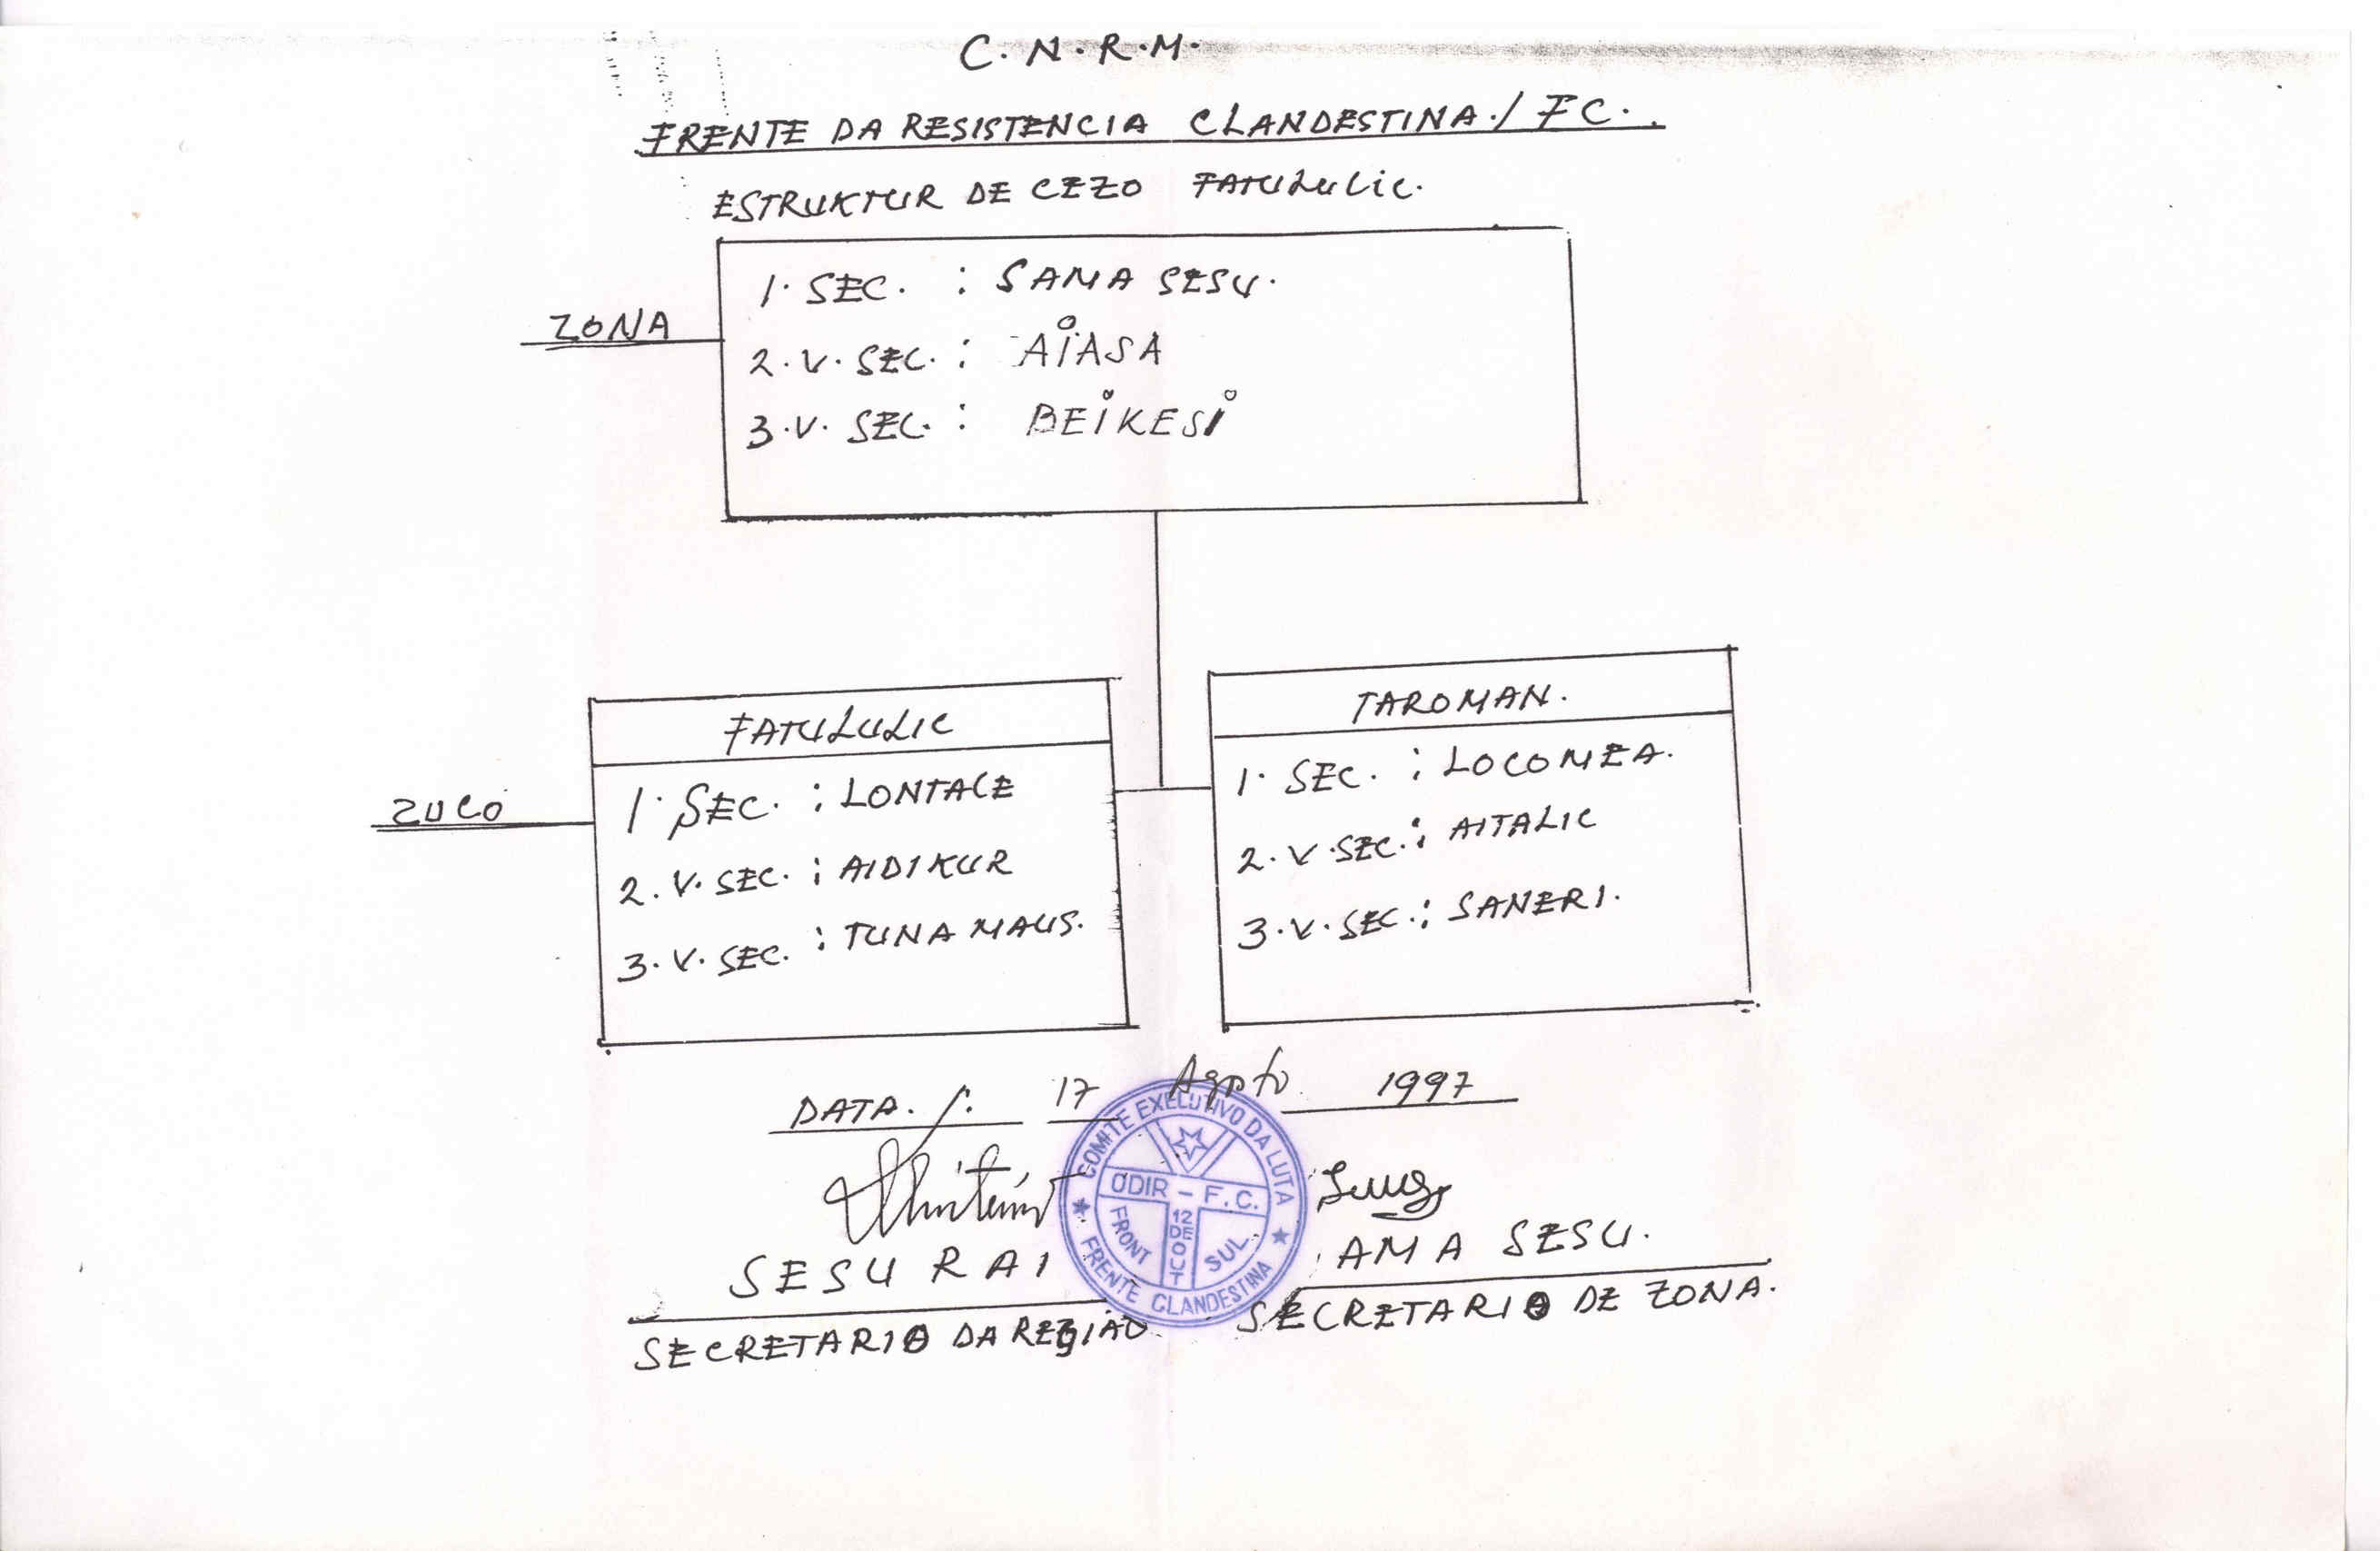 C.N.R.M.
FRENTE DA RESISTENCIA CLANDESTINA./FC.
ESTRUKTUR DE CEZO FATULULIC.
ZONA
1. SEC. : SAMA SESU.
2. V. SEC. : AIASA
3. V. SEC. : BEIKESI
ZUCO
FATULULIC
1. SEC. : LONTACE
2. V. SEC. : AIDIKUR
3. V. SEC. : TUNA MAUS.
TAROMAN.
1. SEC. : LOCOMEA.
2. V. SEC. : AITALIC
3. V. SEC. : SANERI.
DATA. 17 Agosto 1997
COMITE EXECUTIVO DA LUTA
ODIR - F.C.
FRONT SUL
12 DE OUT
FRENTE CLANDESTINA
SESU RAI
SECRETARIO DA REGIAO.
AMA SESU.
SECRETARIO DE ZONA.